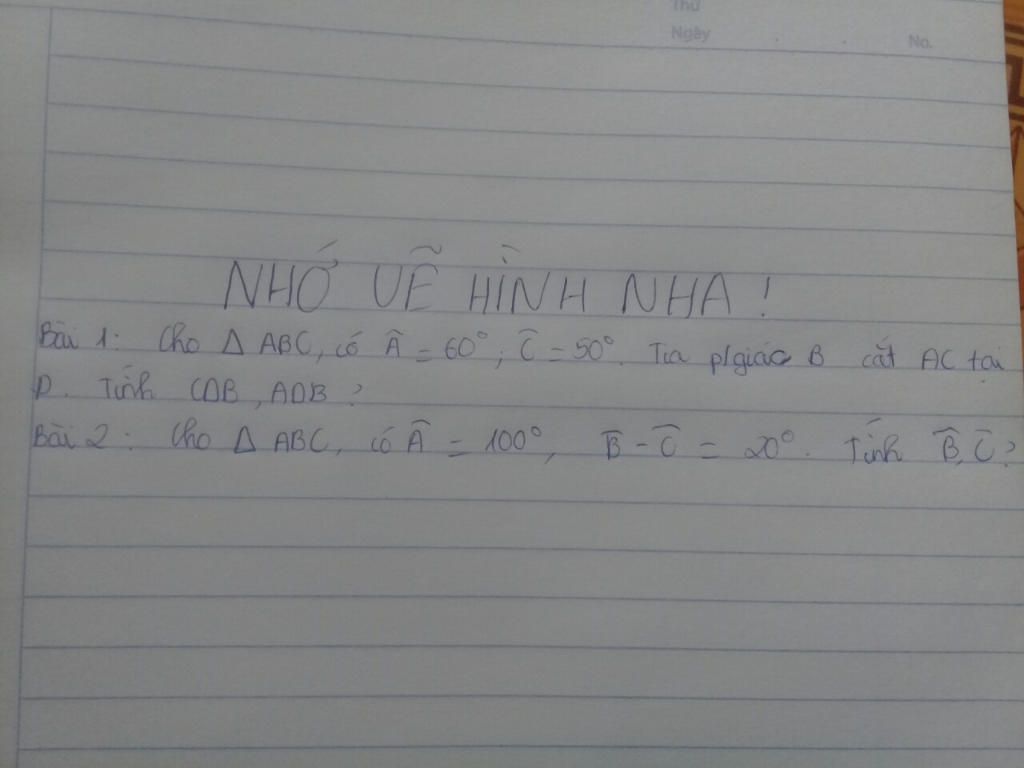 Thứ
Ngày . . No.
NHỚ VẼ HÌNH NHA !
Bài 1: Cho Δ ABC, có Â = 60°; Ĉ = 50°. Tia p/giác B cắt AC tại
D. Tính CDB, ADB ?
Bài 2: Cho Δ ABC, có Â = 100°, B̂ - Ĉ = 20°. Tính B̂, Ĉ ?